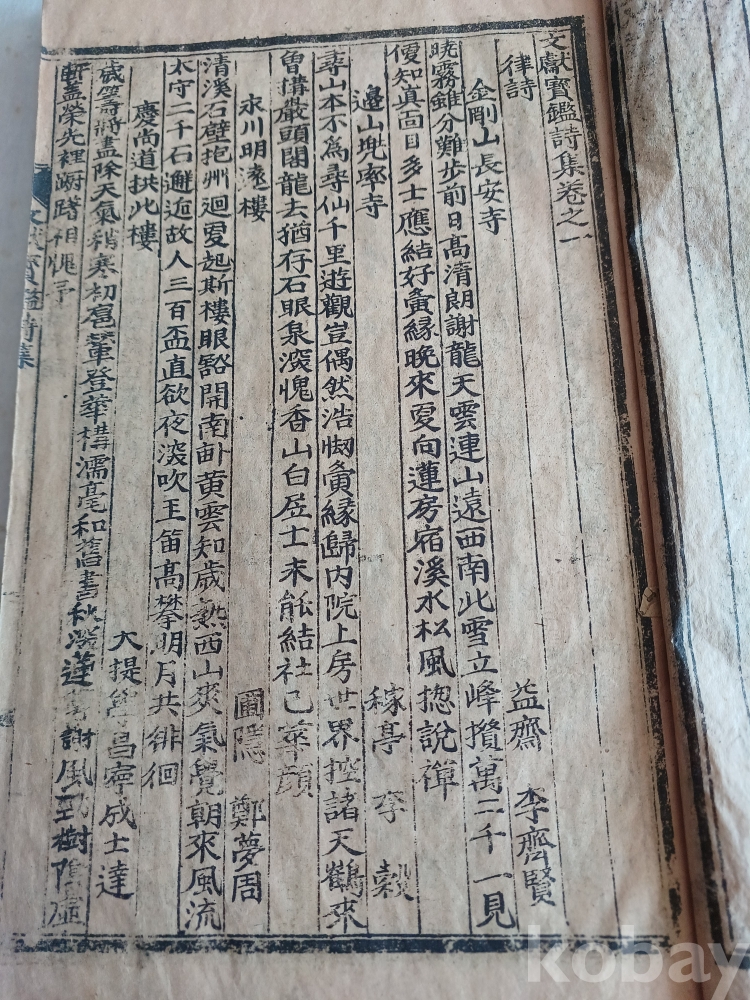 文獻寶鑑詩集卷之一
律詩
金剛山長安寺 益齋 李齊賢
曉霧雖分難步前日高清朗謝龍天雲連山遠西南北雪立峰攢萬二千一見
便知真面目多士應結好夤緣晚來更向蓮房宿溪水松風揔說禪
邉山兠率寺 稼亭 李 糓
尋山本不為尋仙千里遊觀豈偶然浩刼夤緣歸内院上房世界控諸天鶴來
曾搆巖頭閣龍去猶存石眼泉深愧香山白居士未能結社已華顔
永川明遠樓 圃隱 鄭夢周
清溪石壁抱州迴更起斯樓眼豁開南畒黄雲知歲熟西山爽氣覺朝來風流
太守二千石邂逅故人三百盃直欲夜深吹玉笛高攀明月共徘徊
慶尚道拱北樓 大提學昌寧成士達
歲籥將盡除天氣稍寒初扈輦登華構濡毫和舊書秋深蓮 謝風 樹陰虛
軒盖榮先裡 踏 愧予
文獻寶鑑詩集
kobay